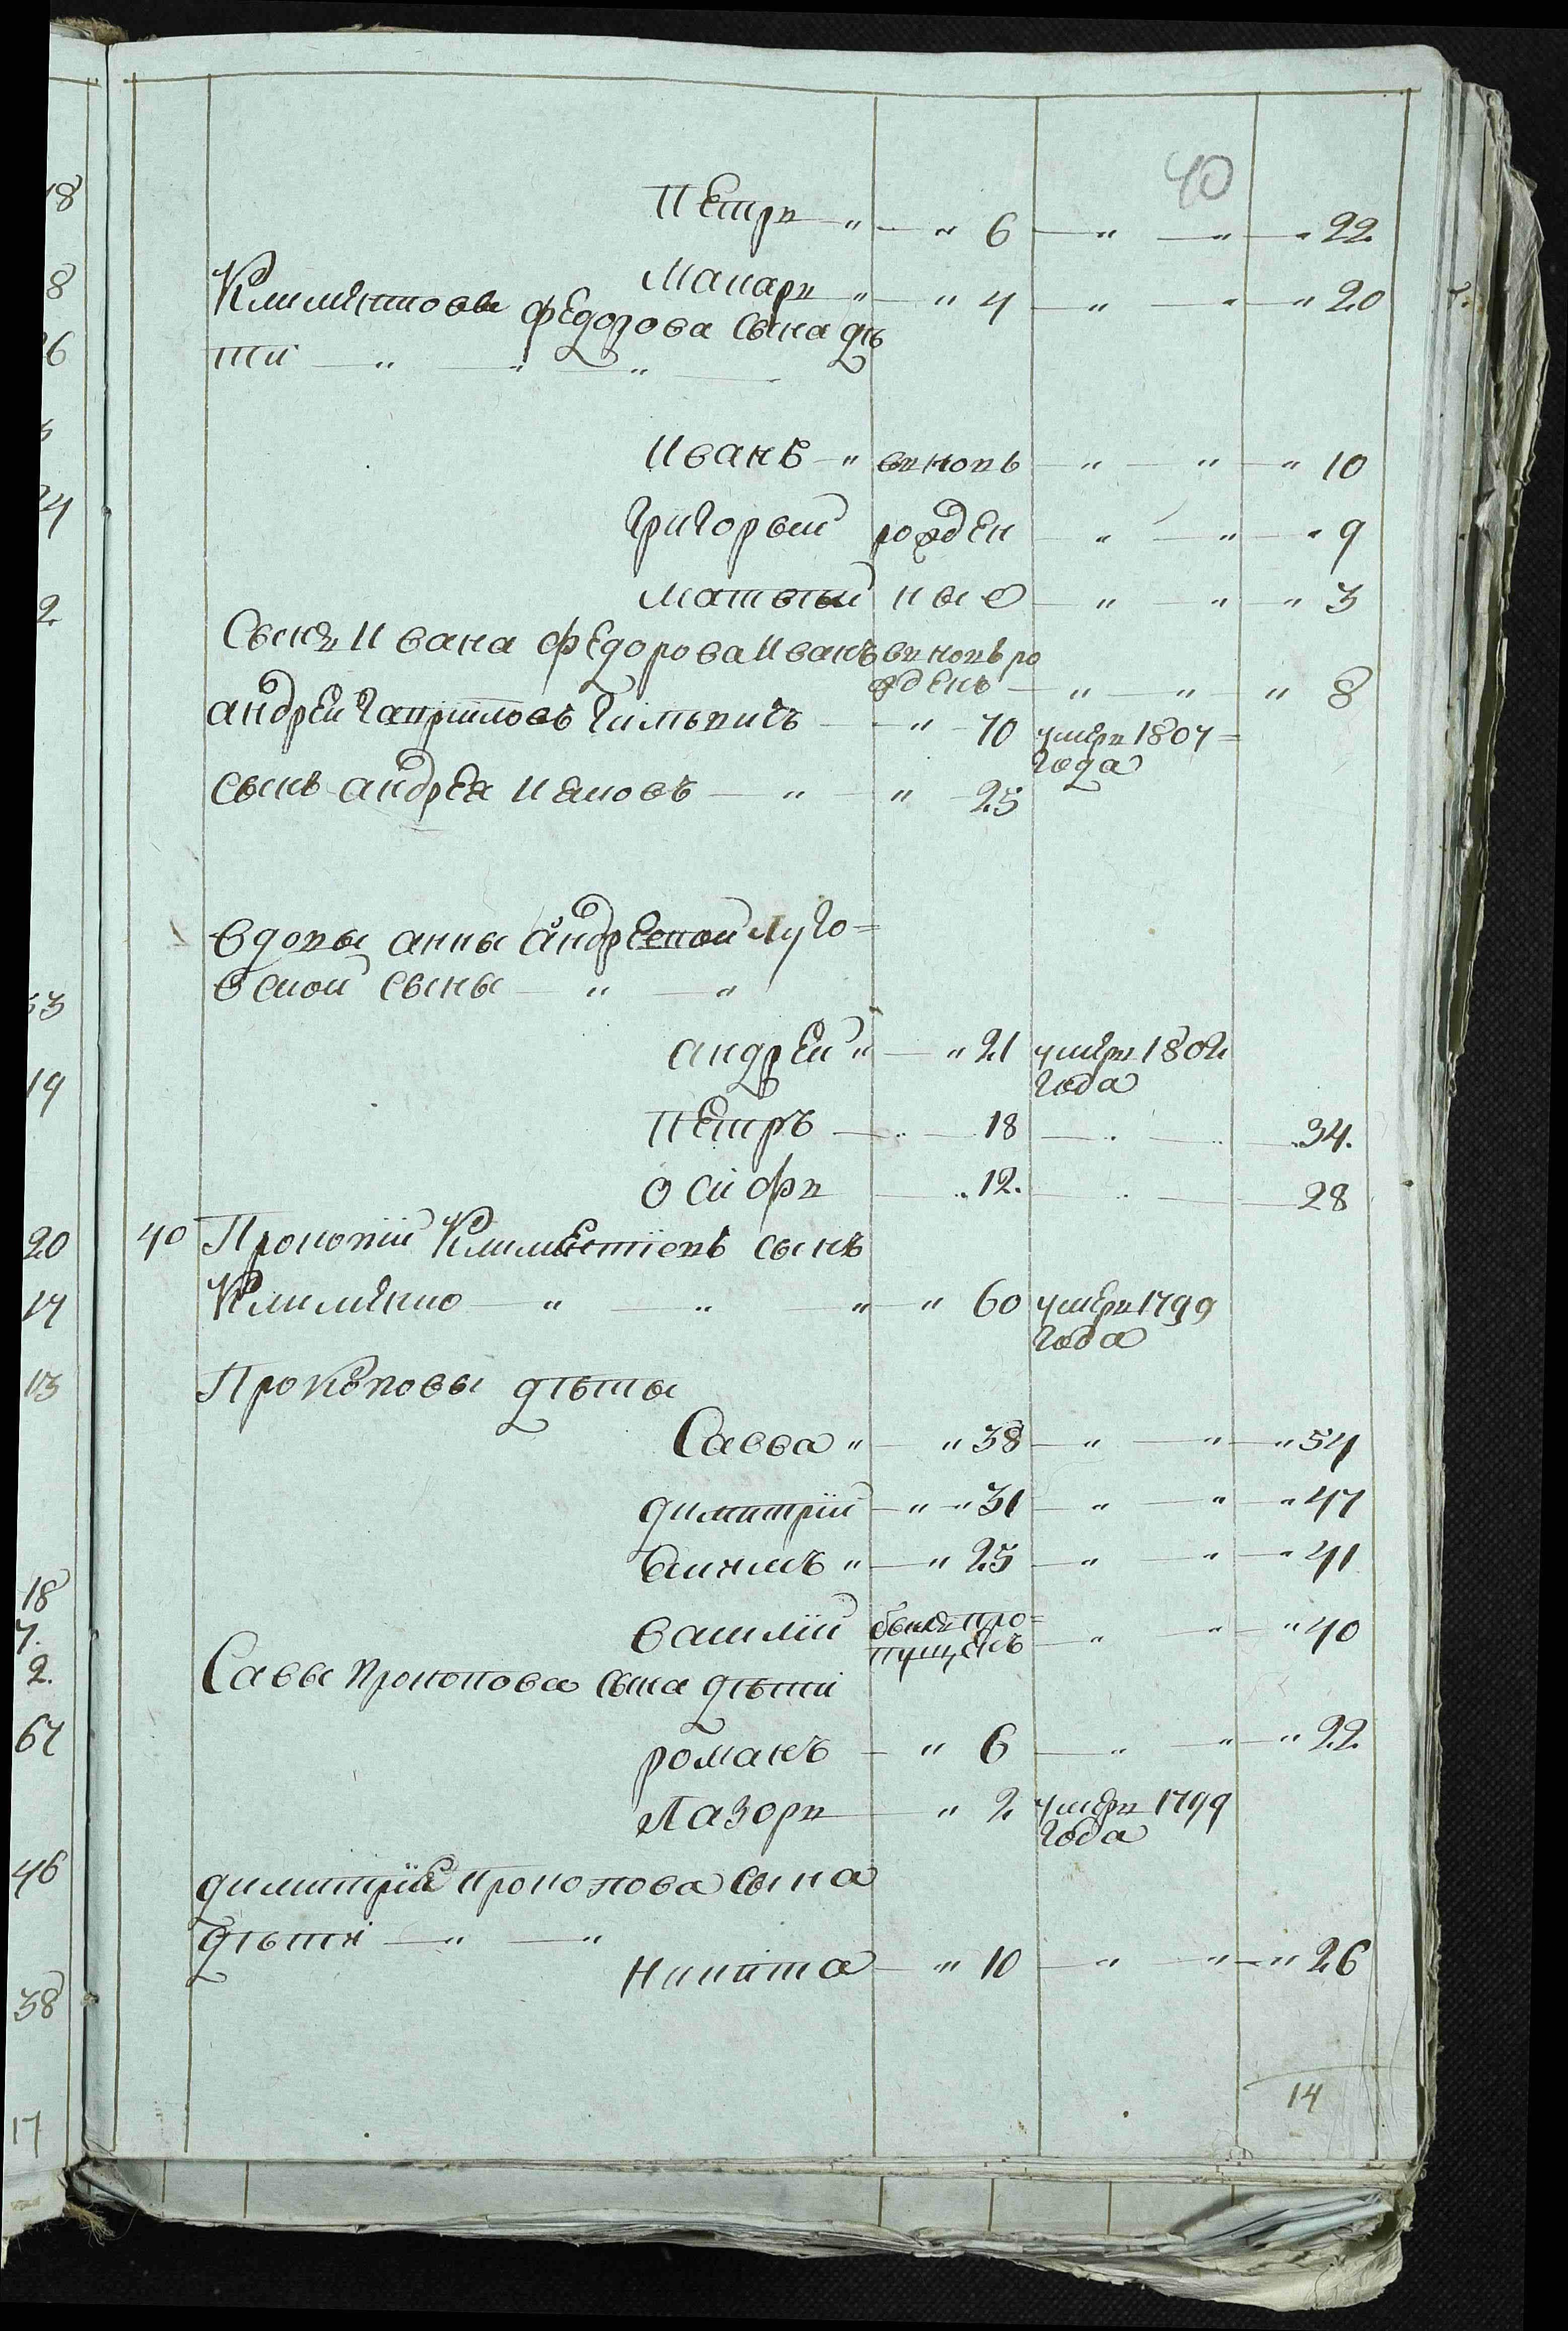 40
Петръ " — " 6 — " — " — " 22
Макаръ " — " 4 — " — " — " 20
Климентовы Федорова сына дѣ
ти — " — " — " —
Иванъ — " вновь — " — " — " 10
Григорый рожден — " — " — " 9
Матвѣй ные — " — " — " 3
Сынъ Ивана Федорова Иванъ вновь ро
жденъ — " — " — " 8
Андрей Гавриловъ — " 70 умеръ 1807=
года
Сынъ Андрея — " — " 25
Вдовы Анны Андреевой Луго=
вской сыны — " — "
Андрей " — " 21 умеръ 1802
года
Петръ — " — 18 — " — " — 34.
Осифъ — " 12. — " — 28
40 Прокопій Климентіевъ сынъ
Клименко — " — " — " — " 60 умеръ 1799
года
Прокоповы дѣты
Савва " — " 38 — " — " — " 54
Димитрій — " — " 31 — " — " — " 47
" — " 25 — " — " — " 41
Василій былъ про=
пущенъ — " — " — " 40
Савы Прокопова сына дѣти
Романъ — " 6 — " — " — " 22
Лазоръ — " 2 умеръ 1799
года
Димитрія Прокопова сына
дѣти — " — "
Никита — " 10 — " — " — " 26
14
18
8
26
24
2
33
19
20
17
13
18
7.
2.
67
46
38
17